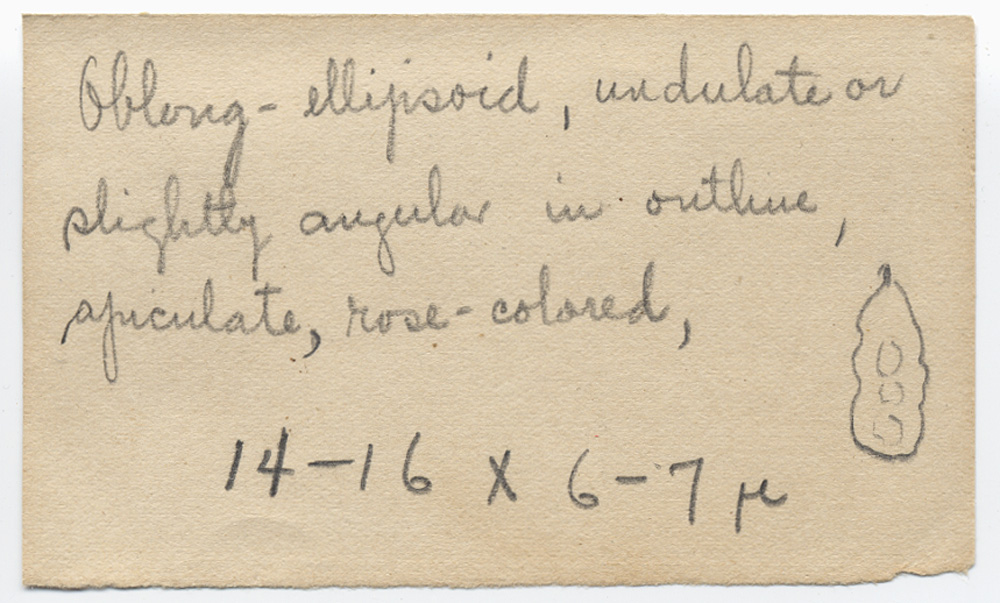 Oblong-ellipsoid, undulate or
slightly angular in outline,
apiculate, rose-colored,
14-16 x 6-7 µ